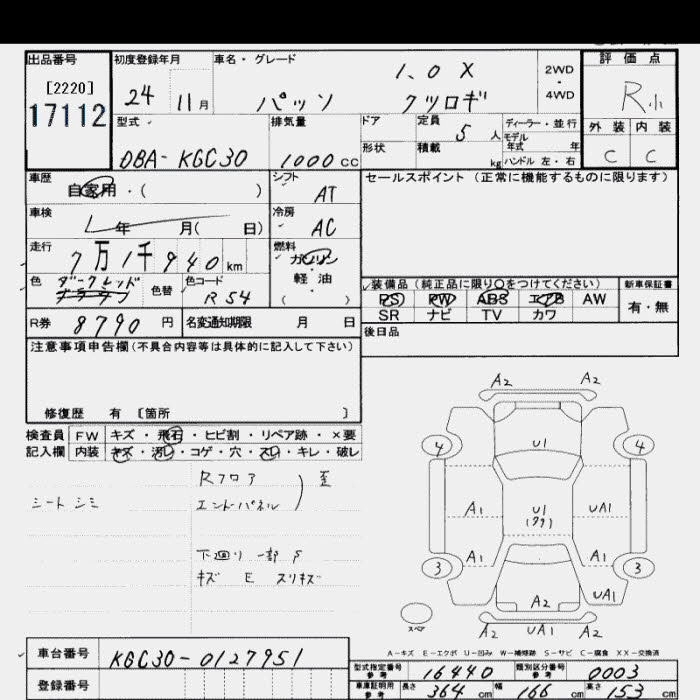 出品番号 初度登録年月 車名・グレード 評価点
[2220] 24 11月 1.0 X 2WD・4WD R小
17112 パッソ クツロギ
型式 排気量 ドア 定員 5人 ディーラー・並行 外装 内装
モデル年式 年
DBA-KGC30 1000cc 形状 積載 kg ハンドル 左・右 C C
車歴 自家用・( ) シフト AT セールスポイント (正常に機能するものに限ります)
車検 年 月( 日) 冷房 AC
走行 7万1千940km 燃料 ガソリン・軽油 ( )
色 ダークレッド 色替 色コード R54
装備品 (純正品に限り○をつけてください) 新車保証書
PS PW ABS エアB AW 有・無
SR ナビ TV カワ
R券 8790円 名変通知期限 月 日 後日品
注意事項申告欄(不具合内容等は具体的に記入して下さい)
修復歴 有 [箇所 ]
検査員 FW キズ・飛石・ヒビ割・リペア跡・×要
記入欄 内装 キズ・汚レ・コゲ・穴・スレ・キレ・破レ
Rフロア
エンドパネル 歪
シートシミ
下回り 一部 P
キズ E スリキズ
A2 A2
4 U1 4
A1 U1 UA1
(77)
A1 A1
3 3
A2 UA1
スペア A2 UA1 A2
A-キズ E-エクボ U-凹み W-補修跡 S-サビ C-腐食 XX-交換済
車台番号 KGC30-0127951
登録番号
型式指定番号 参考 16440 類別区分番号 参考 0003
車庫証明用 参考 長さ 364cm 幅 166cm 高さ 153cm